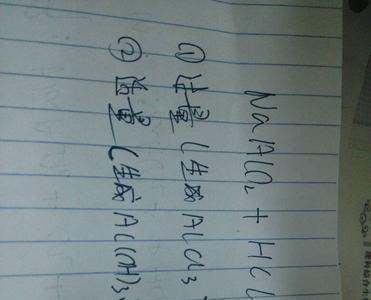 NaAlO₂ + HCl
① 过量 (生成 AlCl₃
② 适量 (生成 Al(OH)₃